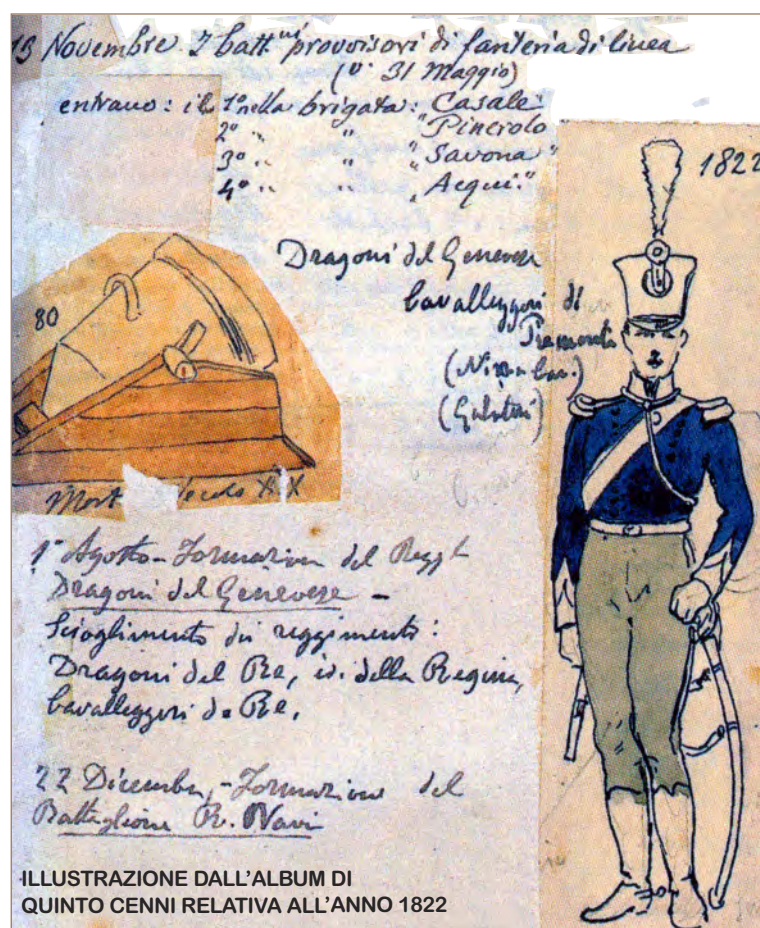 13 Novembre. I batt.ni provvisori di fanteria di linea
(v. 31 Maggio)
entrano: il 1º nella brigata: Casale
2º " " "Pinerolo
3º " " "Savona"
4º " " "Acqui."
1822
Dragoni del Genevese
Cavalleggeri di
Piemonte
80
1º Agosto - Formazione del Regg.t
Dragoni del Genevese -
Scioglimento dei reggimento:
Dragoni del Re, id. della Regina,
Cavalleggeri de Re.
22 Dicembre, - Formazione del
Battaglione R. Navi
ILLUSTRAZIONE DALL'ALBUM DI
QUINTO CENNI RELATIVA ALL'ANNO 1822